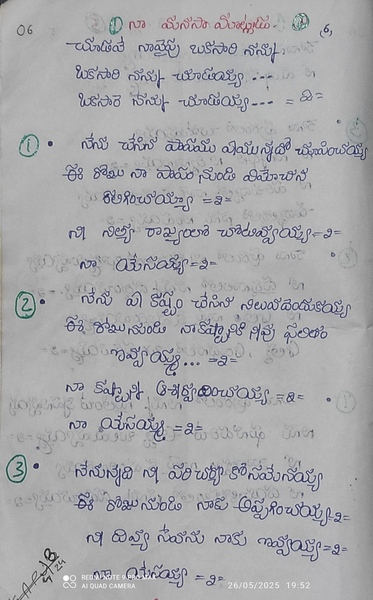 06 ① నా మనసా మాట్లాడు ② 6,
చూడవే నావైపు ఒకసారి నన్ను
ఒకసారి నన్ను చూడయ్య ...
ఒకసారి నన్ను చూడయ్య... =2=
① • నేను చేసిన పాపము ఏమున్నదో చూపించయ్య
ఈ రోజు నా పాపం నుండి విమోచన
కలిగించయ్యా =2=
నీ నిత్య రాజ్యంలో చోటివ్వయ్య =2=
నా యేసయ్య =2=
② • నేను ఏ కష్టం చేసినా నిలువదెందుకయ్య
ఈ రోజు నుండి నా కష్టానికి నీవు ఫలితం
ఇవ్వయ్య... =2=
నా కష్టాన్ని ఆశీర్వదించయ్య =2=
నా యేసయ్య =2=
③ • నేనున్నది నీ పరిచర్య కోసమేనయ్య
ఈ రోజు నుండి నాకు అప్పగించయ్య =2=
నీ దివ్య సేవను నాకు ఇవ్వయ్య =2=
నా యేసయ్య =2=
REDMI NOTE 9 PRO MAX
AI QUAD CAMERA
26/05/2025 19:52